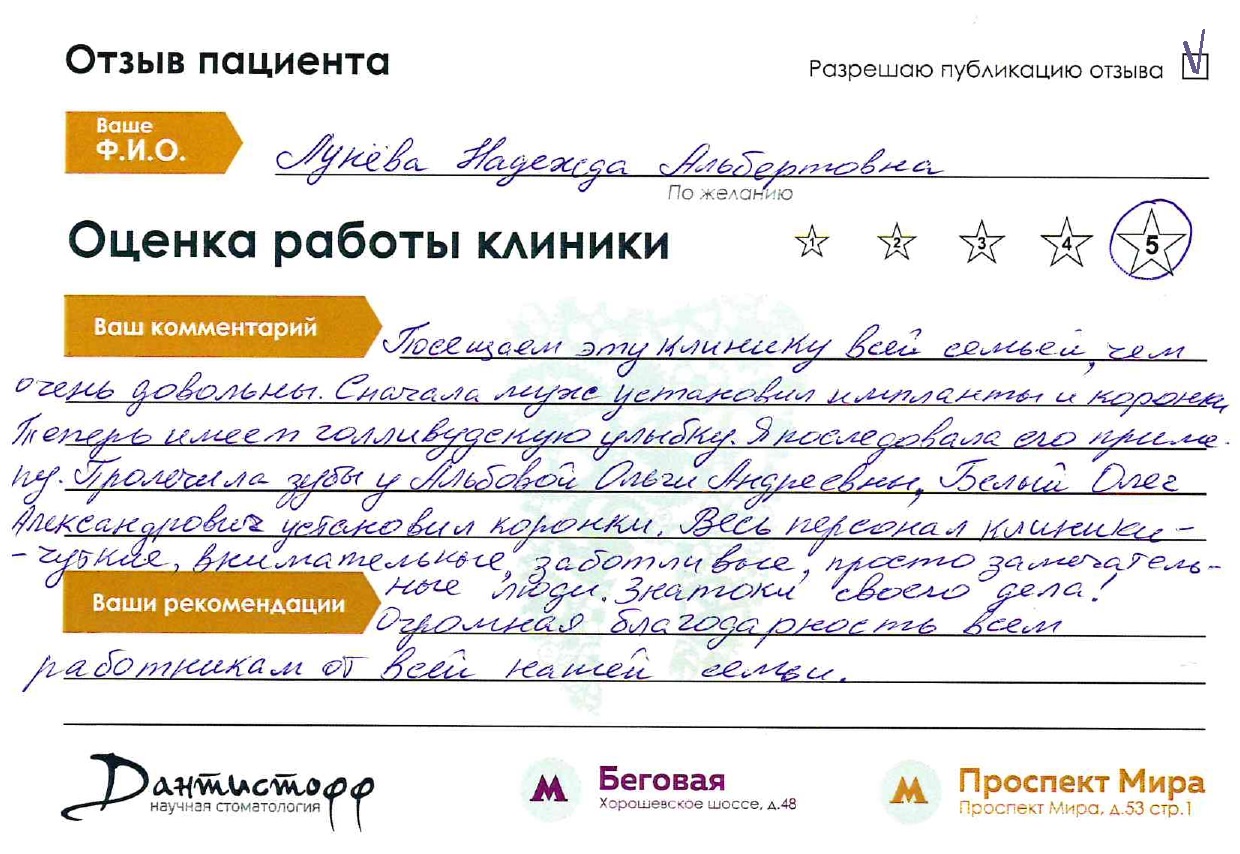 Отзыв пациента
Разрешаю публикацию отзыва
Ваше
Ф.И.О.
Лунёва Надежда Альбертовна
По желанию
Оценка работы клиники
1 2 3 4 5
Ваш комментарий
Посещаем эту клинику всей семьей, чем
очень довольны. Сначала муж установил импланты и коронки
Теперь имеет голливудскую улыбку. Я последовала его приме-
ру. Пролечила зубы у Альбовой Ольги Андреевны, Белый Олег
Александрович установил коронки. Весь персонал клиники -
- чуткие, внимательные, заботливые, просто замечатель-
ные люди. Знатоки своего дела!
Ваши рекомендации
Огромная благодарность всем
работникам от всей нашей семьи.
Дантистофф
научная стоматология
М Беговая
Хорошевское шоссе, д.48
М Проспект Мира
Проспект Мира, д.53 стр.1